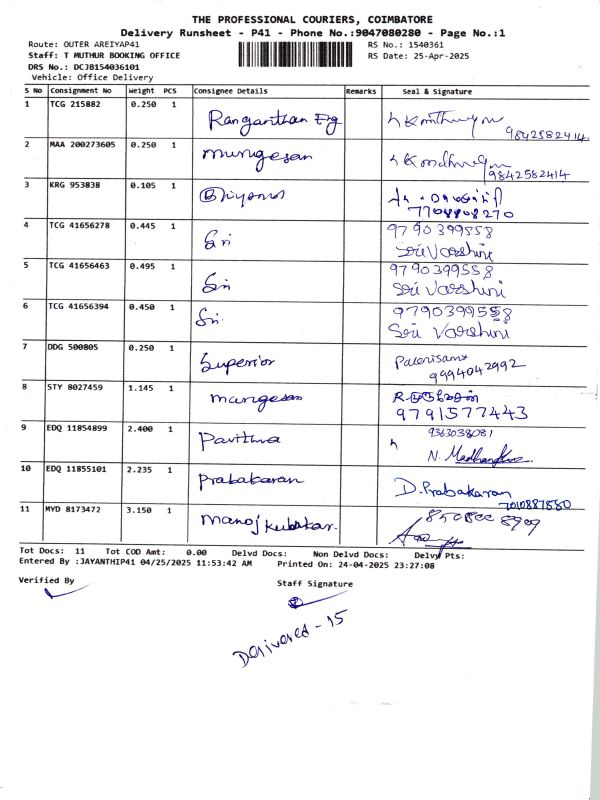 THE PROFESSIONAL COURIERS, COIMBATORE
Delivery Runsheet - P41 - Phone No.:9047080280 - Page No.:1
Route: OUTER AREIYAP41
RS No.: 1540361
Staff: T MUTHUR BOOKING OFFICE
RS Date: 25-Apr-2025
DRS No.: DCJB154036101
Vehicle: Office Delivery
S No Consignment No Weight PCS Consignee Details Remarks Seal & Signature
1 TCG 215882 0.250 1 Ranganthan Erg
9842582414
2 MAA 200273605 0.250 1 murugesan
9842582414
3 KRG 953838 0.105 1
7708808270
4 TCG 41656278 0.445 1 Sri 9790399558
Sri Varshini
5 TCG 41656463 0.495 1 Sri 9790399558
Sri Varshini
6 TCG 41656394 0.450 1 Sri 9790399558
Sri Varshini
7 DDG 500805 0.250 1 Superior
9994042992
8 STY 8027459 1.145 1 murugesan
9791577443
9 EDQ 11854899 2.400 1 Pavithra 9363038081
10 EDQ 11855101 2.235 1 Prabakaran D.Prabakaran
7010887880
11 MYD 8173472 3.150 1 manoj
Tot Docs: 11 Tot COD Amt: 0.00 Delvd Docs: Non Delvd Docs: Delvy Pts:
Entered By :JAYANTHIP41 04/25/2025 11:53:42 AM Printed On: 24-04-2025 23:27:08
Verified By Staff Signature
Delivered - 15